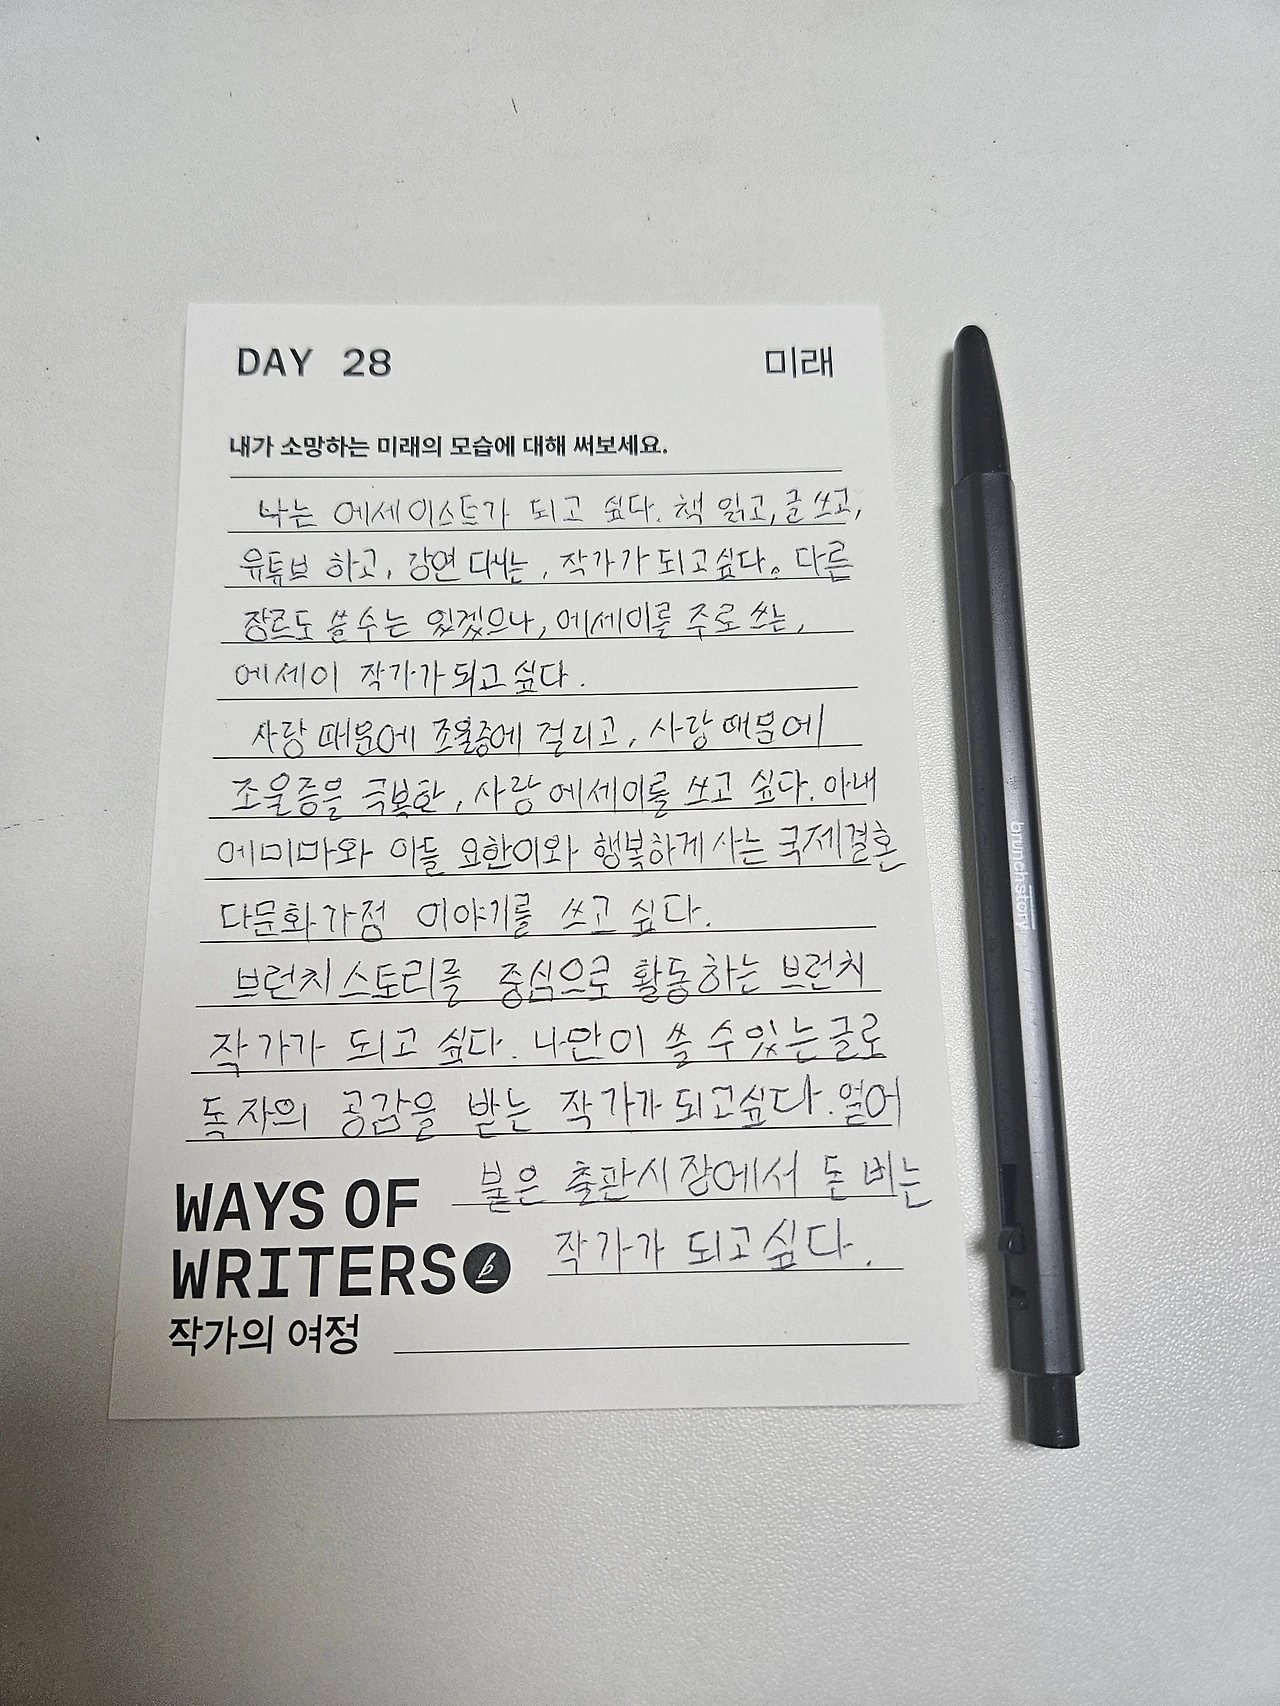 DAY 28 미래
내가 소망하는 미래의 모습에 대해 써보세요.
나는 에세이스트가 되고 싶다. 책 읽고, 글 쓰고,
유튜브 하고, 강연 다니는, 작가가 되고싶다. 다른
장르도 쓸 수는 있겠으나, 에세이를 주로 쓰는,
에세이 작가가 되고 싶다.
사랑 때문에 조울증에 걸리고, 사랑 때문에
조울증을 극복한, 사랑 에세이를 쓰고 싶다. 아내
에미마와 아들 요한이와 행복하게 사는 국제결혼
다문화가정 이야기를 쓰고 싶다.
브런치스토리를 중심으로 활동하는 브런치
작가가 되고 싶다. 나만이 쓸 수 있는 글로
독자의 공감을 받는 작가가 되고싶다. 얼어
붙은 출판시장에서 돈 버는
작가가 되고싶다.
WAYS OF
WRITERS
작가의 여정
brunchstory